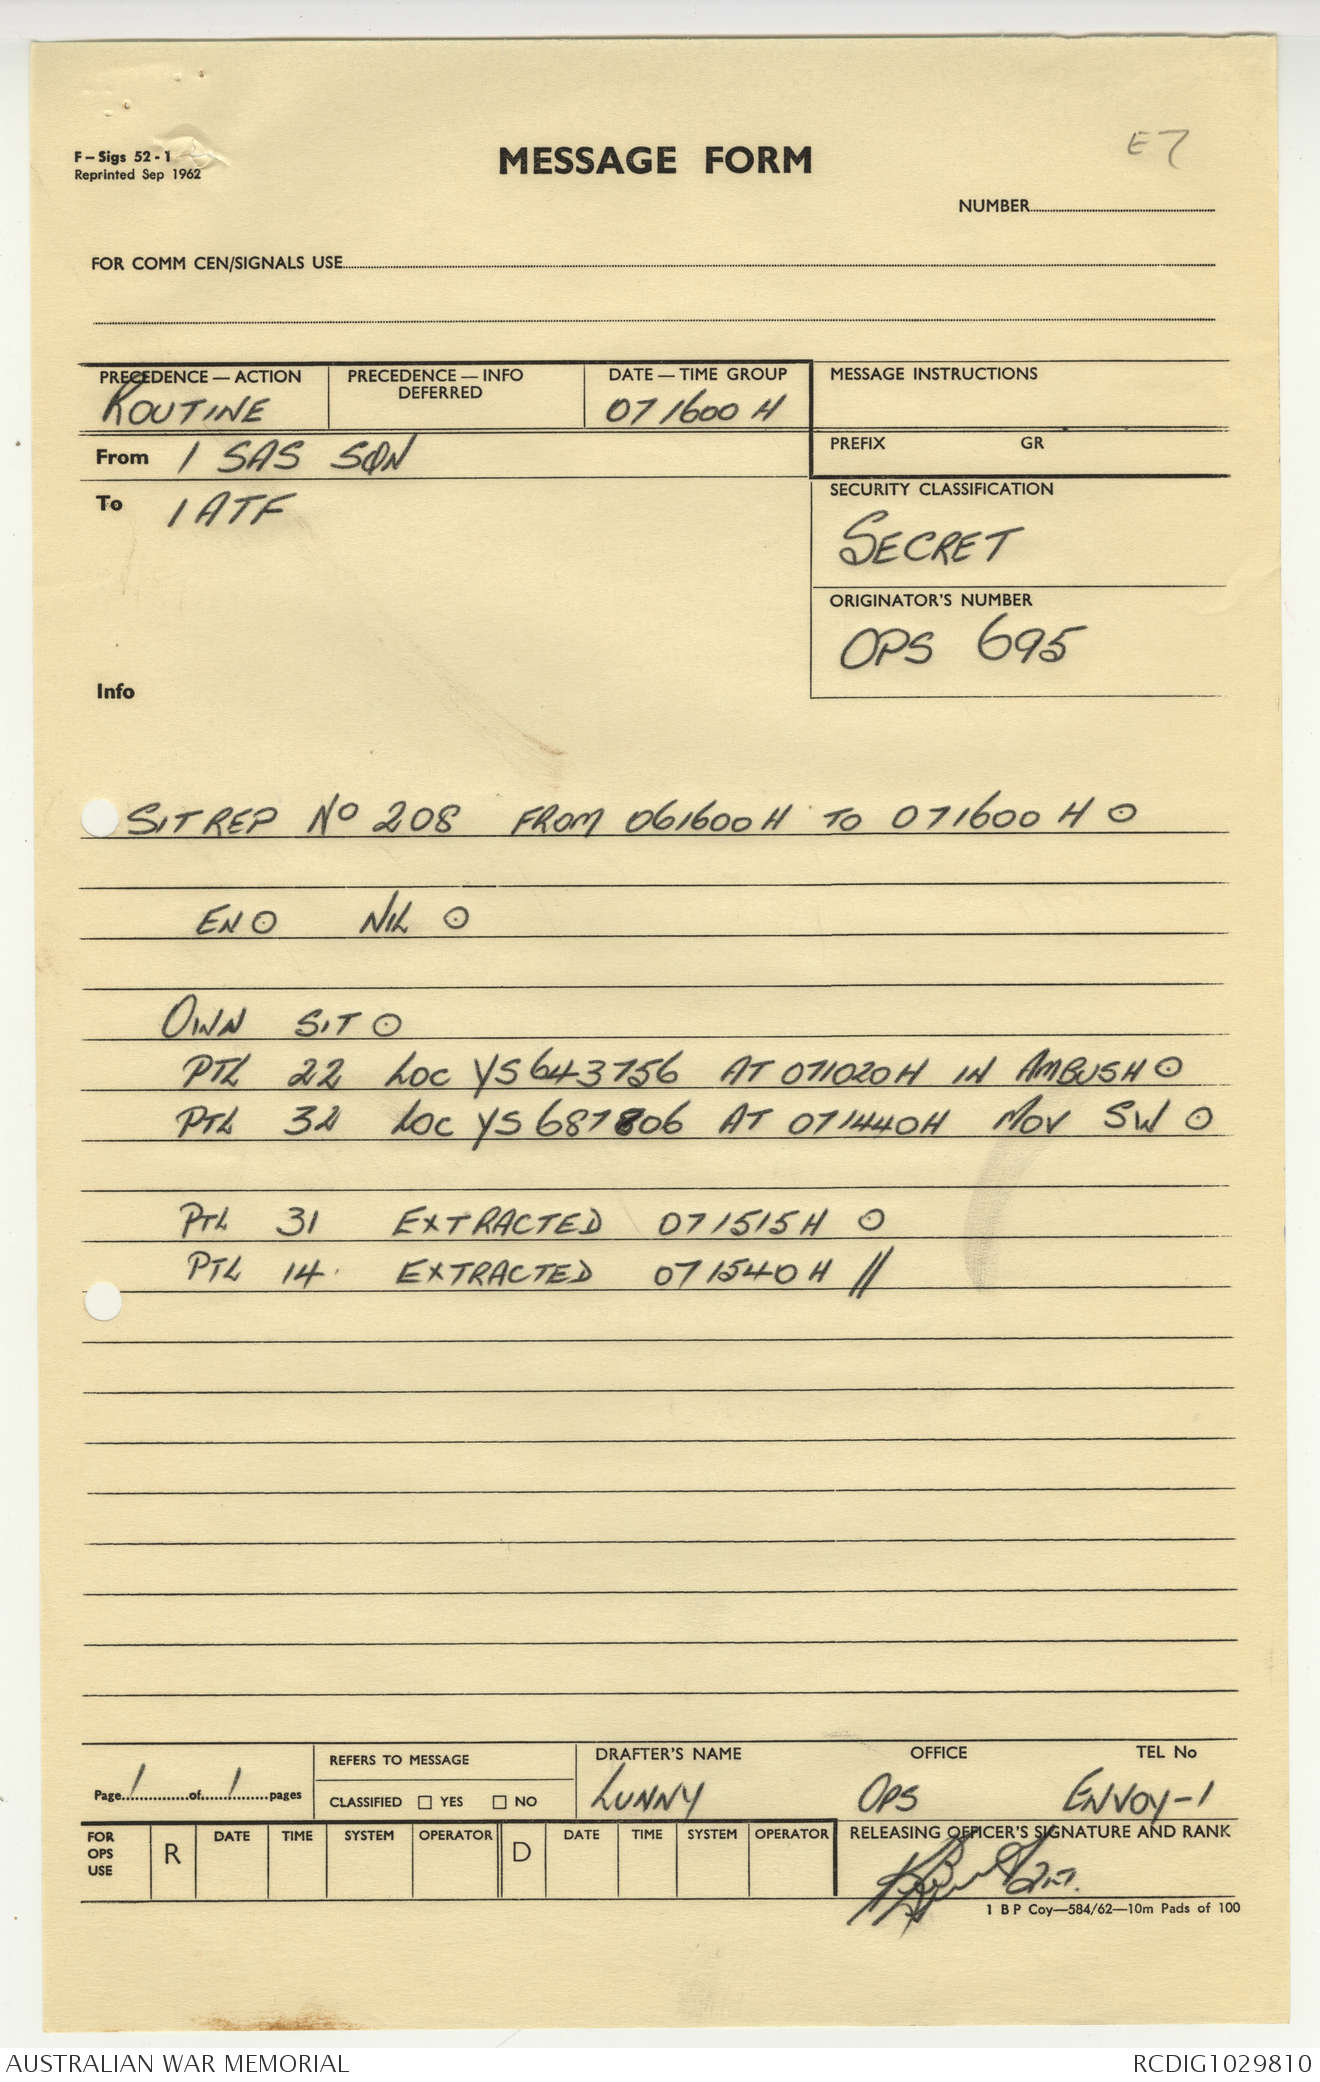 F – Sigs 52 - 1
Reprinted Sep 1962
MESSAGE FORM
E7
NUMBER
FOR COMM CEN/SIGNALS USE
PRECEDENCE — ACTION
ROUTINE
PRECEDENCE — INFO
DEFERRED
DATE — TIME GROUP
071600 H
MESSAGE INSTRUCTIONS
PREFIX GR
From 1 SAS SQN
To 1 ATF
SECURITY CLASSIFICATION
SECRET
ORIGINATOR'S NUMBER
OPS 695
Info
SITREP No 208 FROM 061600 H TO 071600 H ⊙
EN ⊙ NIL ⊙
OWN SIT ⊙
PTL 22 LOC YS 643756 AT 071020H IN AMBUSH ⊙
PTL 32 LOC YS 687806 AT 071440H MOV SW ⊙
PTL 31 EXTRACTED 071515H ⊙
PTL 14 EXTRACTED 071540H //
Page 1 of 1 pages
REFERS TO MESSAGE
CLASSIFIED ☐ YES ☐ NO
DRAFTER'S NAME OFFICE TEL No
LUNNY OPS ENVOY-1
FOR OPS USE
R DATE TIME SYSTEM OPERATOR
D DATE TIME SYSTEM OPERATOR
RELEASING OFFICER'S SIGNATURE AND RANK
1 B P Coy—584/62—10m Pads of 100
AUSTRALIAN WAR MEMORIAL
RCDIG1029810